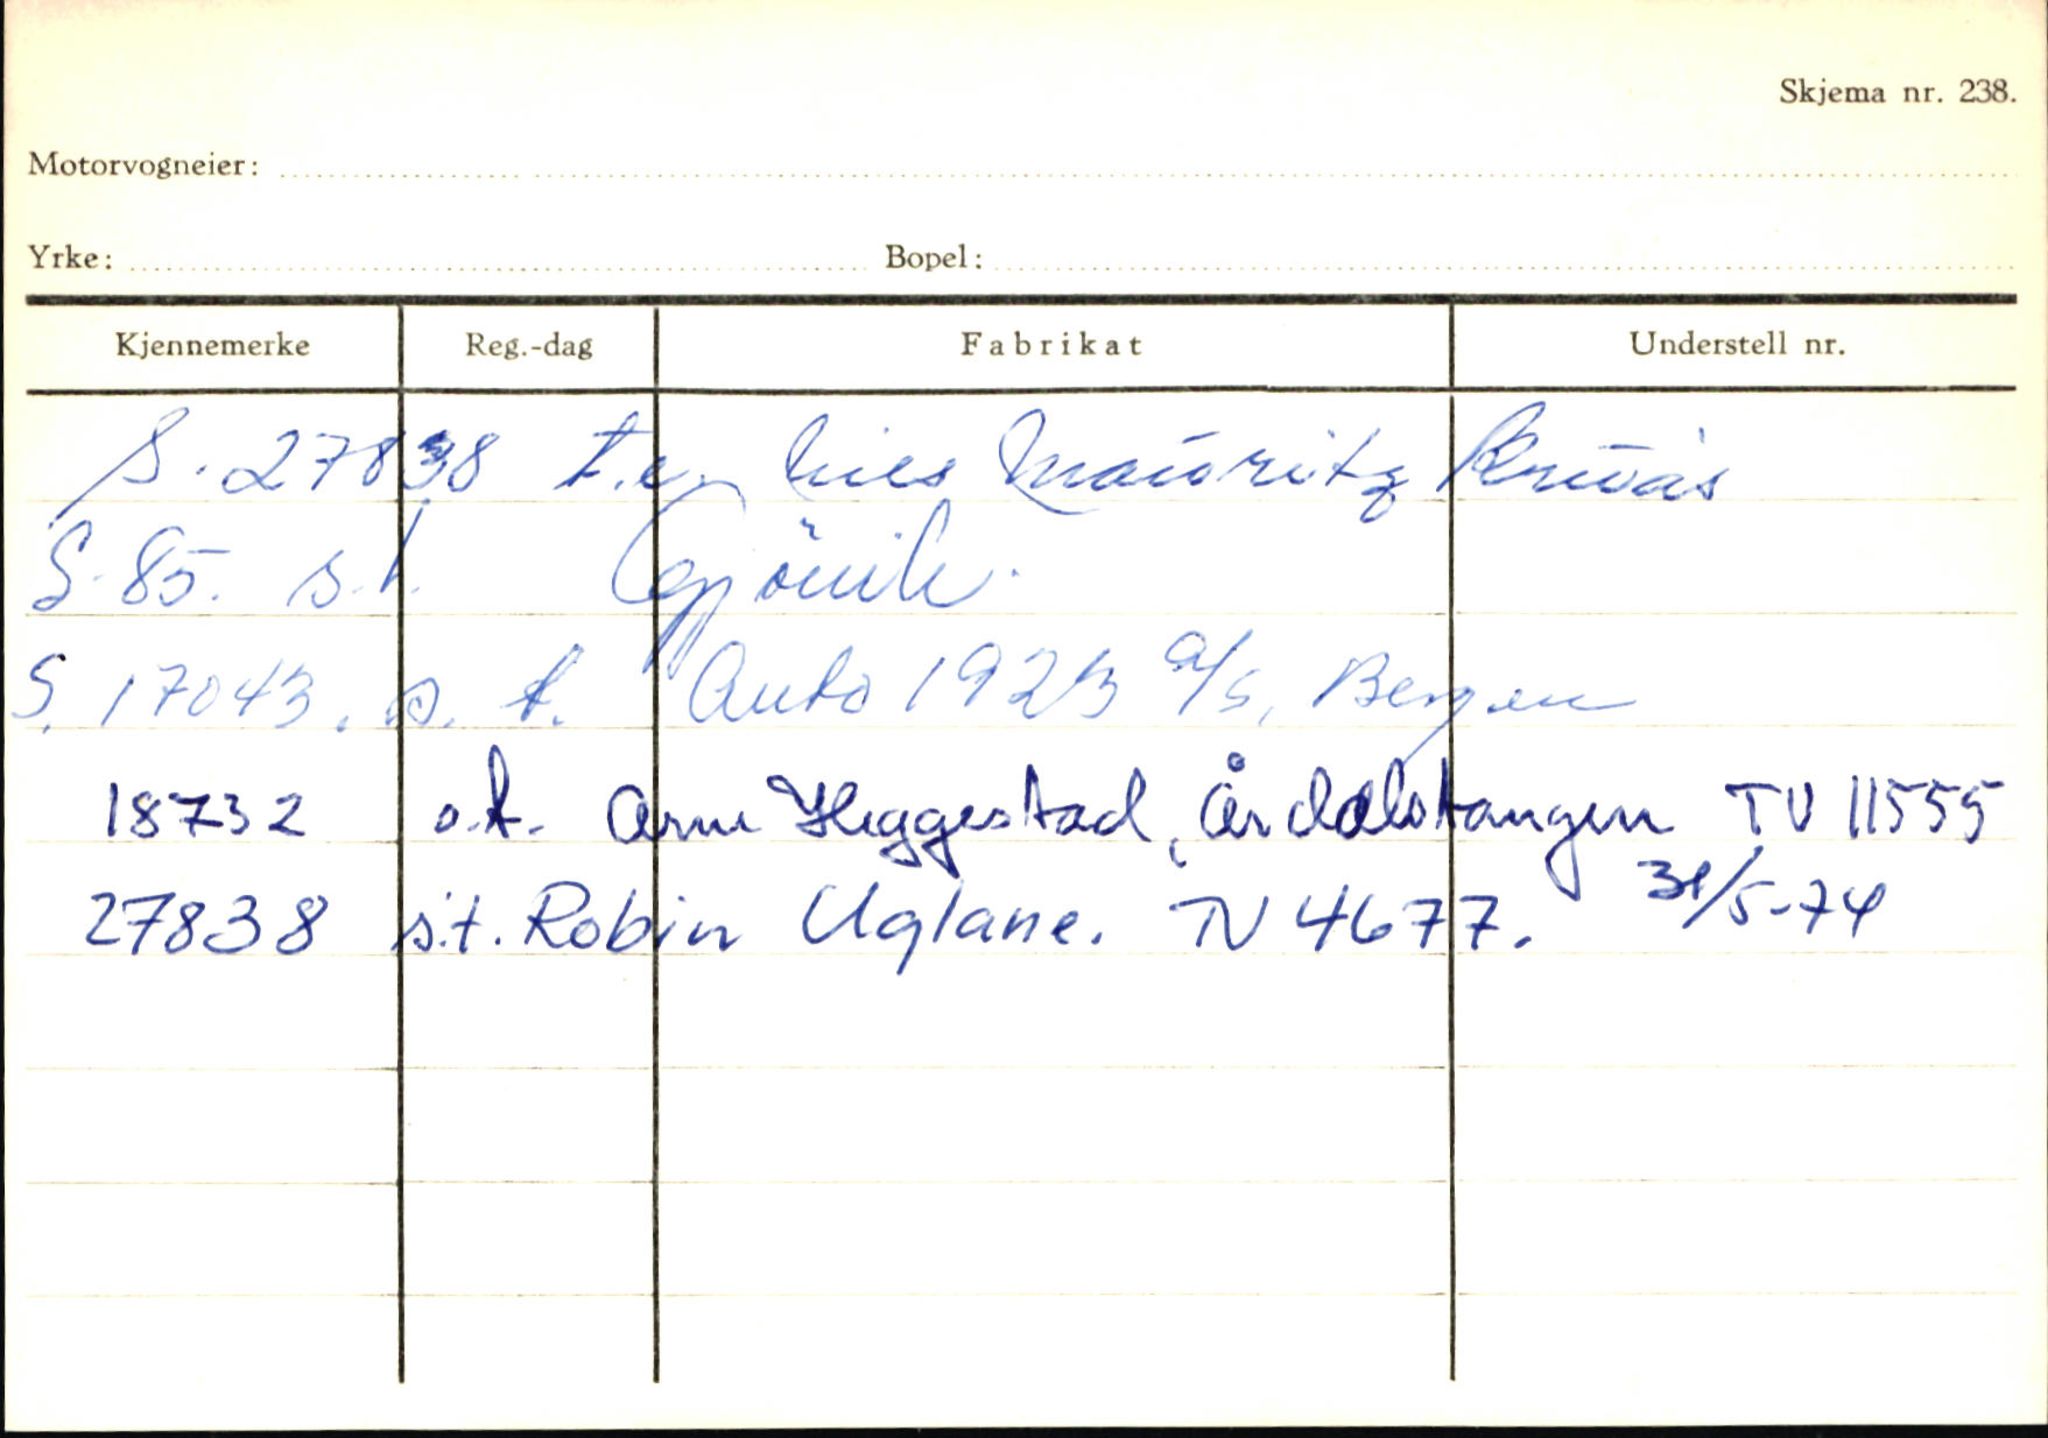 Skjema nr. 238.
Motorvogneier:
Yrke: Bopel:
Kjennemerke Reg.-dag Fabrikat Understell nr.
S. 27838 t.e. Mauritz
S-85. s.t. Gjövik.
S. 17043. s. t. Auto 1923 a/s, Bergen
18732 o.t. Arne Heggestad, Årdalstangen TU 11555
27838 s.t. Robin Uglane. TV 4677. 31/5-74